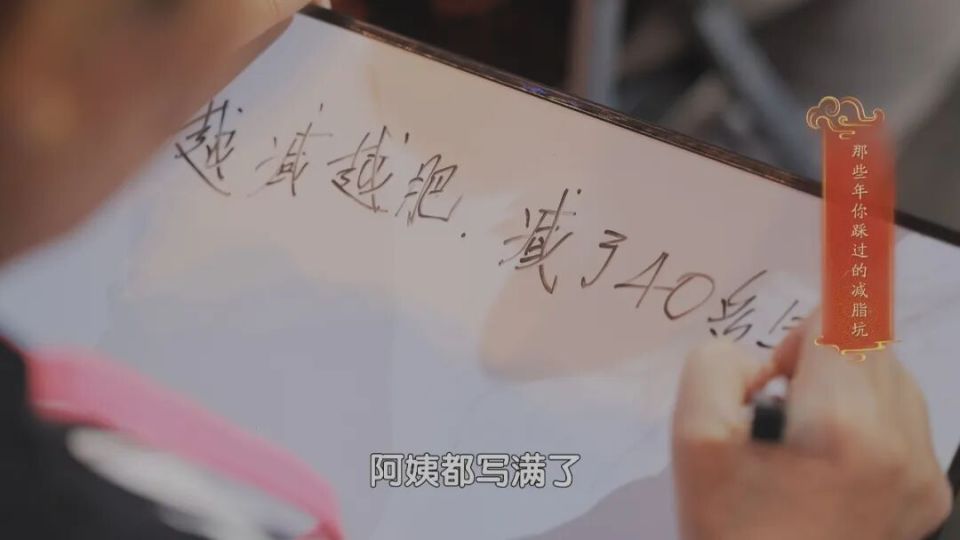 越减越肥.减了40多
那些年你踩过的减脂坑
阿姨都写满了